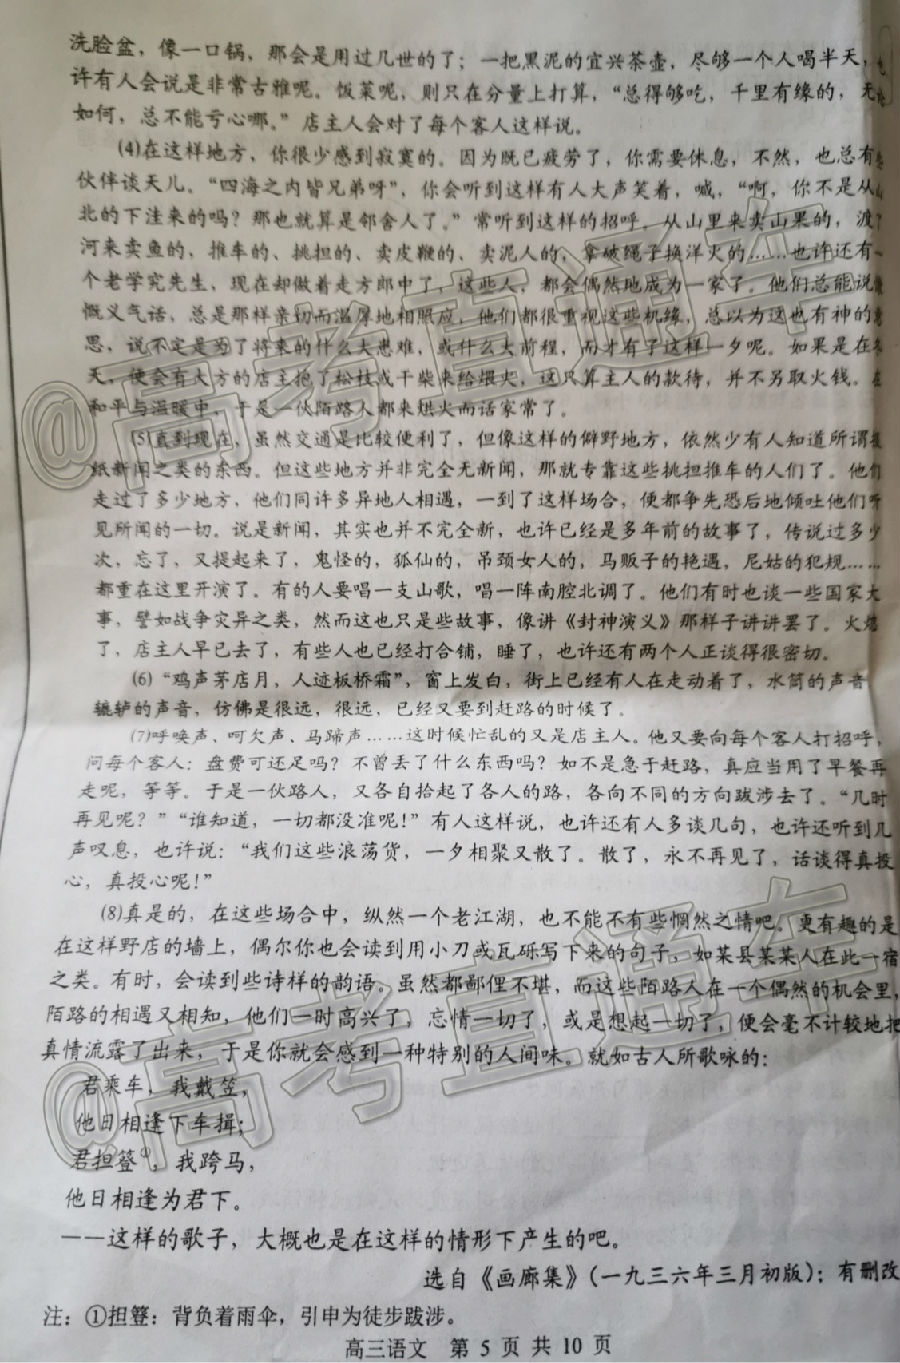 洗脸盆，像一口锅，那会是用过几世的了；一把黑泥的宜兴茶壶，尽够一个人喝半天，
许有人会说是非常古雅呢。饭菜呢，则只在分量上打算，“总得够吃，千里有缘的，无
如何，总不能亏心哪。”店主人会对了每个客人这样说。
(4)在这样地方，你很少感到寂寞的。因为既已疲劳了，你需要休息，不然，也总有
伙伴谈天儿。“四海之内皆兄弟呀”，你会听到这样有人大声笑着，喊，“啊，你不是从
北的下洼来的吗？那也就算是邻舍人了。”常听到这样的招呼。从山里来卖山果的，渡
河来卖鱼的，推车的、挑担的、卖皮鞭的、卖泥人的，拿破绳子换洋火的……也许还有一
个老学究先生，现在却做着走方郎中了，这些人，都会偶然地成为一家了。他们总能说
慨义气话，总是那样亲切而温厚地相照应，他们都很重视这些机缘，总以为这也有神的意
思，说不定是为了将来的什么大患难，或什么大前程，而才有了这样一夕呢。如果是在冬
天，便会有大方的店主抱了松枝或干柴来给煨火，这只算主人的款待，并不另取火钱。在
和平与温暖中，于是一伙陌路人都来烘火而话家常了。
(5)直到现在，虽然交通是比较便利了，但像这样的僻野地方，依然少有人知道所谓报
纸新闻之类的东西。但这些地方并非完全无新闻，那就专靠这些挑担推车的人们了。他们
走过了多少地方，他们同许多异地人相遇，一到了这样场合，便都争先恐后地倾吐他们所
见所闻的一切。说是新闻，其实也并不完全新，也许已经是多年前的故事了，传说过多少
次，忘了，又提起来了，鬼怪的，狐仙的，吊颈女人的，马贩子的艳遇，尼姑的犯规……
都重在这里开演了。有的人要唱一支山歌，唱一阵南腔北调了。他们有时也谈一些国家大
事，譬如战争灾异之类，然而这也只是些故事，像讲《封神演义》那样子讲讲罢了。火熄
了，店主人早已去了，有些人也已经打合铺，睡了，也许还有两个人正谈得很密切。
(6)“鸡声茅店月，人迹板桥霜”，窗上发白，街上已经有人在走动着了，水筒的声音
辘轳的声音，仿佛是很远，很远，已经又要到赶路的时候了。
(7)呼唤声、呵欠声、马蹄声……这时候忙乱的又是店主人。他又要向每个客人打招呼，
问每个客人：盘费可还足吗？不曾丢了什么东西吗？如不是急于赶路，真应当用了早餐再
走呢，等等。于是一伙路人，又各自拾起了各人的路，各向不同的方向跋涉去了。“几时
再见呢？”“谁知道，一切都没准呢！”有人这样说，也许还有人多谈几句，也许还听到几
声叹息，也许说：“我们这些浪荡货，一夕相聚又散了。散了，永不再见了，话谈得真投
心，真投心呢！”
(8)真是的，在这些场合中，纵然一个老江湖，也不能不有些惘然之情吧。更有趣的是
在这样野店的墙上，偶尔你也会读到用小刀或瓦砾写下来的句子，如某县某某人在此一宿
之类。有时，会读到些诗样的韵语。虽然都鄙俚不堪，而这些陌路人在一个偶然的机会里，
陌路的相遇又相知，他们一时高兴了，忘情一切了，或是想起一切了，便会毫不计较地把
真情流露了出来，于是你就会感到一种特别的人间味。就如古人所歌咏的：
君乘车，我戴笠，
他日相逢下车揖；
君担簦①，我跨马，
他日相逢为君下。
——这样的歌子，大概也是在这样的情形下产生的吧。
选自《画廊集》（一九三六年三月初版）；有删改
注：①担簦：背负着雨伞，引申为徒步跋涉。
高三语文 第 5 页 共 10 页
@高考直通车
@高考直通车